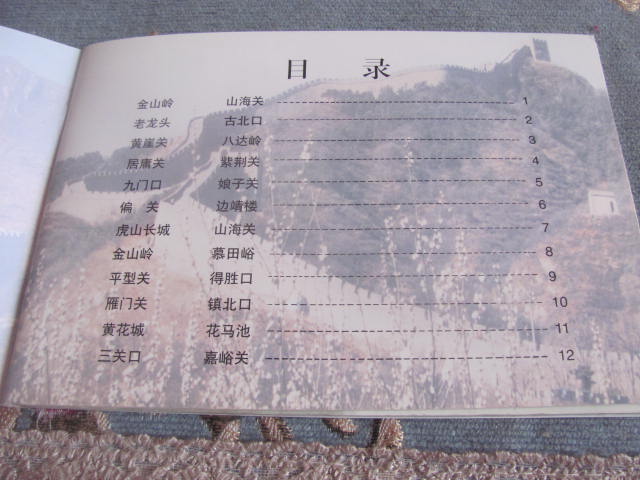 目 录
金山岭 山海关 1
老龙头 古北口 2
黄崖关 八达岭 3
居庸关 紫荆关 4
九门口 娘子关 5
偏 关 边靖楼 6
虎山长城 山海关 7
金山岭 慕田峪 8
平型关 得胜口 9
雁门关 镇北口 10
黄花城 花马池 11
三关口 嘉峪关 12